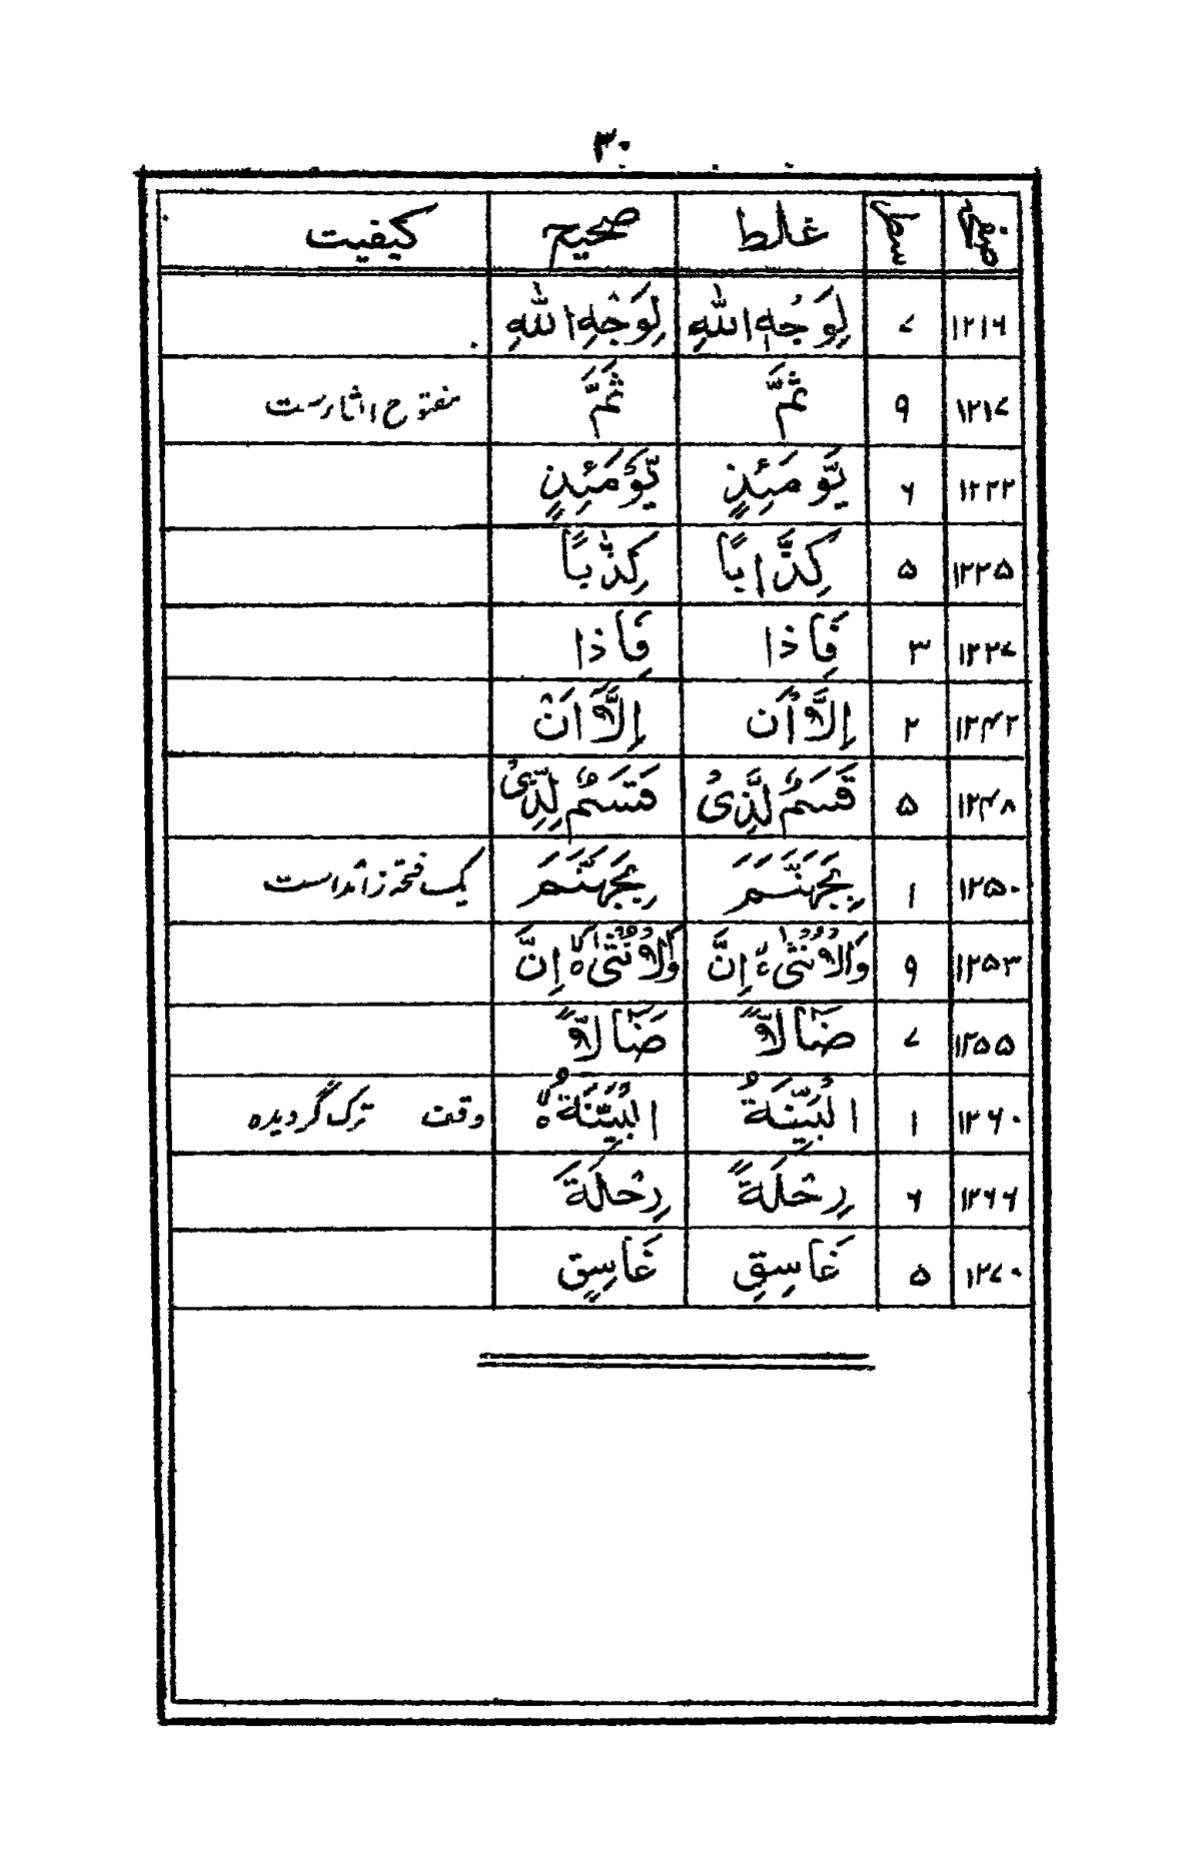 ۳۰
صفحہ سطر غلط صحیح کیفیت
۱۲۱۶ ۷ لِوَجُهِ اللهِ لِوَجْهِ اللهِ
۱۲۱۷ ۹ ثَمَّ ثَمَّ مفتوح الثا رست
۱۲۲۲ ۶ يَّومَئِذٍ يَّوْمَئِذٍ
۱۲۲۵ ۵ كِذَّابًا كِذّٰبًا
۱۲۲۷ ۳ فَاِذا فَاِذا
۱۲۴۲ ۲ اِلَّا اَن اِلَّآ اَنْ
۱۲۴۸ ۵ قَسَمٌ لَّذِىْ قَسَمٌ لِّذِىْ
۱۲۵۰ ۱ بِجَهَنَّمَ بِجَهَنَّمَ یک فتحہ زائد است
۱۲۵۳ ۹ وَالْاُنْثٰى اِنَّ وَالْاُنْثٰىۤ اِنَّ
۱۲۵۵ ۷ ضَآلًّا ضَآلًّا
۱۲۶۰ ۱ الْبَيِّنَةُ الْبَيِّنَةُ وقف ترک گردیدہ
۱۲۶۶ ۶ رِحْلَةً رِحْلَةَ
۱۲۷۰ ۵ غَاسِقِ غَاسِقٍ